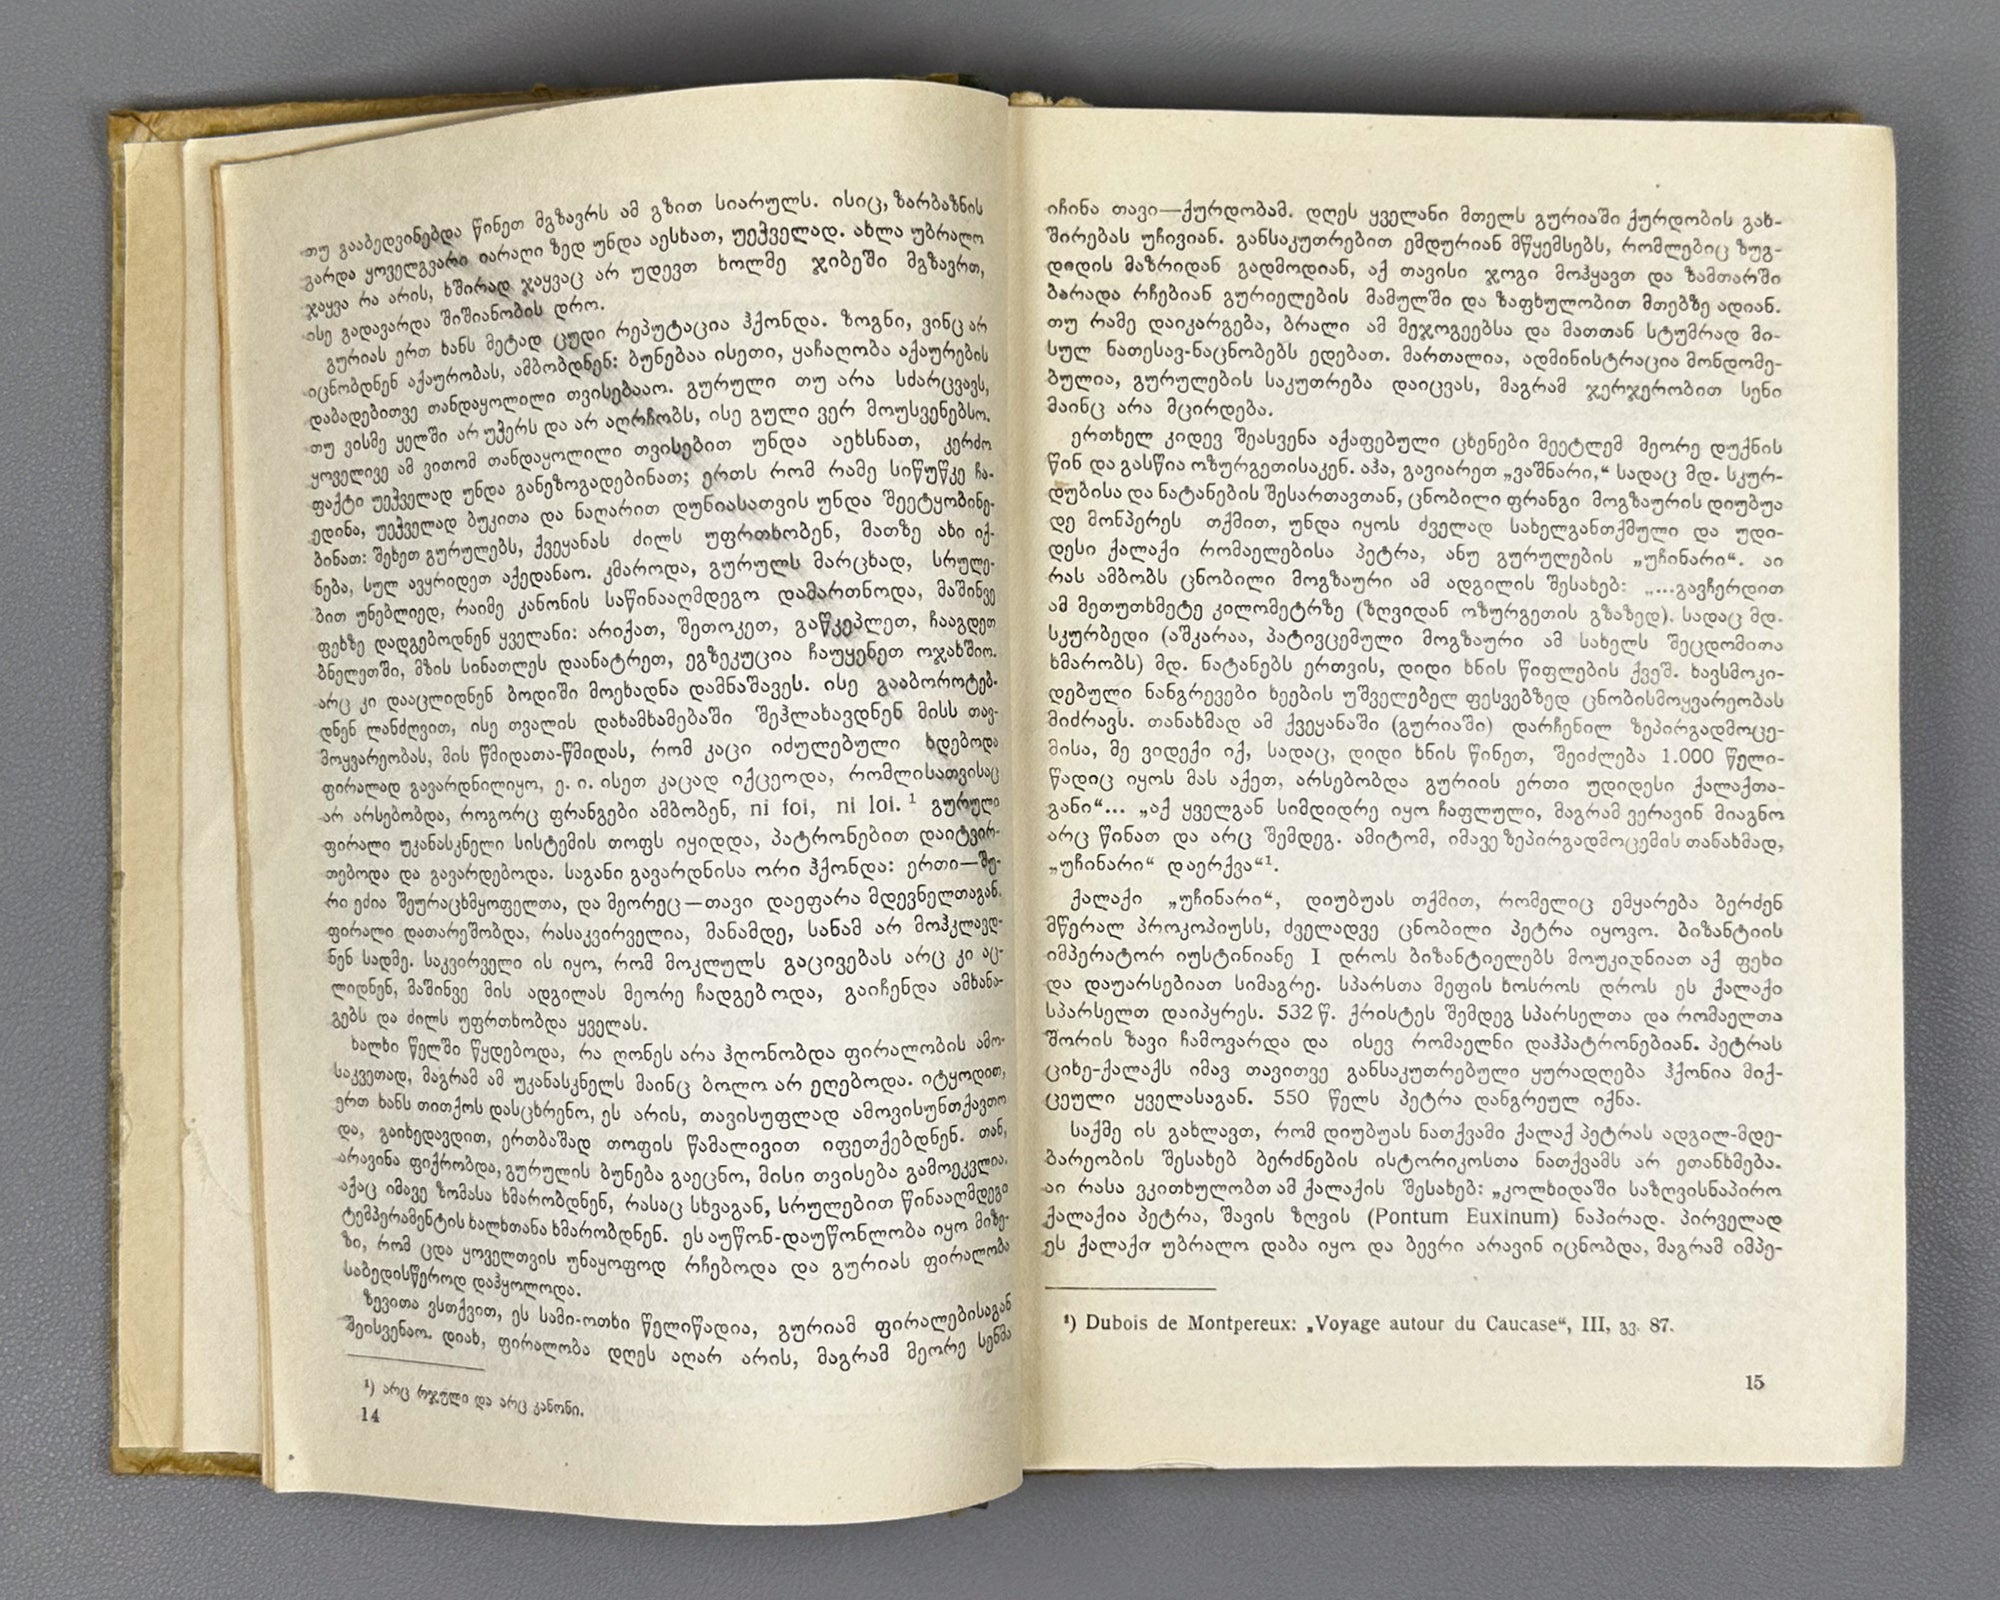 თუ გააბედვინებდა წინეთ მგზავრს ამ გზით სიარულს. ისიც, ზარბაზნის
გარდა ყოველგვარი იარაღი ზედ უნდა აესხათ, უეჭველად. ახლა უბრალო
ჯაყვა რა არის, ხშირად ჯაყვაც არ უდევთ ხოლმე ჯიბეში მგზავრთ,
ისე გადავარდა შიშიანობის დრო.
გურიას ერთ ხანს მეტად ცუდი რეპუტაცია ჰქონდა. ზოგნი, ვინც არ
იცნობდნენ აქაურობას, ამბობდნენ: ბუნებაა ისეთი, ყაჩაღობა აქაურების
დაბადებითვე თანდაყოლილი თვისებააო. გურული თუ არა სძარცვავს,
თუ ვისმე ყელში არ უჭერს და არ აღრჩობს, ისე გული ვერ მოუსვენებსო.
ყოველივე ამ ვითომ თანდაყოლილი თვისებით უნდა აეხსნათ, კერძო
ფაქტი უეჭველად უნდა განეზოგადებინათ; ერთს რომ რამე სიწუწკე ჩა-
ედინა, უეჭველად ბუკითა და ნაღარით დუნიასათვის უნდა შეეტყობინე-
ბინათ: შეხეთ გურულებს, ქვეყანას ძილს უფრთხობენ, მათზე ახი იქ-
ნება, სულ ავყრიდეთ აქედანაო. კმაროდა, გურულს მარცხად, სრულე-
ბით უნებლიედ, რაიმე კანონის საწინააღმდეგო დამართნოდა, მაშინვე
ფეხზე დადგებოდნენ ყველანი: არიქათ, შეთოკეთ, გაწკეპლეთ, ჩააგდეთ
ბნელეთში, მზის სინათლეს დაანატრეთ, ეგზეკუცია ჩაუყენეთ ოჯახშიო.
არც კი დააცლიდნენ ბოდიში მოეხადნა დამნაშავეს. ისე გააბოროტებ-
დნენ ლანძღვით, ისე თვალის დახამხამებაში შეჰლახავდნენ მისს თავ-
მოყვარეობას, მის წმიდათა-წმიდას, რომ კაცი იძულებული ხდებოდა
ფირალად გავარდნილიყო, ე. ი. ისეთ კაცად იქცეოდა, რომლისათვისაც
არ არსებობდა, როგორც ფრანგები ამბობენ, ni foi, ni loi. ¹ გურული
ფირალი უკანასკნელი სისტემის თოფს იყიდდა, პატრონებით დაიტვირ-
თებოდა და გავარდებოდა. საგანი გავარდნისა ორი ჰქონდა: ერთი—შუ-
რი ეძია შეურაცხმყოფელთა, და მეორეც—თავი დაეფარა მდევნელთაგან.
ფირალი დათარეშობდა, რასაკვირველია, მანამდე, სანამ არ მოჰკლავდ-
ნენ სადმე. საკვირველი ის იყო, რომ მოკლულს გაცივებას არც კი აც-
ლიდნენ, მაშინვე მის ადგილას მეორე ჩადგებოდა, გაიჩენდა ამხანა-
გებს და ძილს უფრთხობდა ყველას.
ხალხი წელში წყდებოდა, რა ღონეს არა ჰღონობდა ფირალობის ამო-
საკვეთად, მაგრამ ამ უკანასკნელს მაინც ბოლო არ ეღებოდა. იტყოდით,
ერთ ხანს თითქოს დასცხრენო, ეს არის, თავისუფლად ამოვისუნთქავთო
და, გაიხედავდით, ერთბაშად თოფის წამალივით იფეთქებდნენ. თან,
არავინა ფიქრობდა, გურულის ბუნება გაეცნო, მისი თვისება გამოეკვლია.
აქაც იმავე ზომასა ხმარობდნენ, რასაც სხვაგან, სრულებით წინააღმდეგი
ტემპერამენტის ხალხთანა ხმარობდნენ. ეს აუწონ-დაუწონლობა იყო მიზე-
ზი, რომ ცდა ყოველთვის უნაყოფოდ რჩებოდა და გურიას ფირალობა
საბედისწეროდ დაჰყოლოდა.
ზევითა ვსთქვით, ეს სამი-ოთხი წელიწადია, გურიამ ფირალებისაგან
შეისვენაო. დიახ, ფირალობა დღეს აღარ არის, მაგრამ მეორე სენმა
¹) არც რჯული და არც კანონი.
14
იჩინა თავი—ქურდობამ. დღეს ყველანი მთელს გურიაში ქურდობის გახ-
შირებას უჩივიან. განსაკუთრებით ემდურიან მწყემსებს, რომლებიც ზუგ-
დიდის მაზრიდან გადმოდიან, აქ თავისი ჯოგი მოჰყავთ და ზამთარში
ბარადა რჩებიან გურიელების მამულში და ზაფხულობით მთებზე ადიან.
თუ რამე დაიკარგება, ბრალი ამ მეჯოგეებსა და მათთან სტუმრად მი-
სულ ნათესავ-ნაცნობებს ედებათ. მართალია, ადმინისტრაცია მონდომე-
ბულია, გურულების საკუთრება დაიცვას, მაგრამ ჯერჯერობით სენი
მაინც არა მცირდება.
ერთხელ კიდევ შეასვენა აქაფებული ცხენები მეეტლემ მეორე დუქნის
წინ და გასწია ოზურგეთისაკენ. აჰა, გავიარეთ „ვაშნარი,“ სადაც მდ. სკურ-
დუბისა და ნატანების შესართავთან, ცნობილი ფრანგი მოგზაურის დიუბუა
დე მონპერეს თქმით, უნდა იყოს ძველად სახელგანთქმული და უდი-
დესი ქალაქი რომაელებისა პეტრა, ანუ გურულების „უჩინარი“. აი
რას ამბობს ცნობილი მოგზაური ამ ადგილის შესახებ: „...გავჩერდით
ამ მეთუთხმეტე კილომეტრზე (ზღვიდან ოზურგეთის გზაზედ). სადაც მდ.
სკურბედი (აშკარაა, პატივცემული მოგზაური ამ სახელს შეცდომითა
ხმარობს) მდ. ნატანებს ერთვის, დიდი ხნის წიფლების ქვეშ. ხავსმოკი-
დებული ნანგრევები ხეების უშველებელ ფესვებზედ ცნობისმოყვარეობას
მიძრავს. თანახმად ამ ქვეყანაში (გურიაში) დარჩენილ ზეპირგადმოცე-
მისა, მე ვიდექი იქ, სადაც, დიდი ხნის წინეთ, შეიძლება 1.000 წელი-
წადიც იყოს მას აქეთ, არსებობდა გურიის ერთი უდიდესი ქალაქთა-
განი“... „აქ ყველგან სიმდიდრე იყო ჩაფლული, მაგრამ ვერავინ მიაგნო
არც წინათ და არც შემდეგ. ამიტომ, იმავე ზეპირგადმოცემის თანახმად,
„უჩინარი“ დაერქვა“¹.
ქალაქი „უჩინარი“, დიუბუას თქმით, რომელიც ემყარება ბერძენ
მწერალ პროკოპიუსს, ძველადვე ცნობილი პეტრა იყოვო. ბიზანტიის
იმპერატორ იუსტინიანე I დროს ბიზანტიელებს მოუკიდნიათ აქ ფეხი
და დაუარსებიათ სიმაგრე. სპარსთა მეფის ხოსროს დროს ეს ქალაქი
სპარსელთ დაიპყრეს. 532 წ. ქრისტეს შემდეგ სპარსელთა და რომაელთა
შორის ზავი ჩამოვარდა და ისევ რომაელნი დაჰპატრონებიან. პეტრას
ციხე-ქალაქს იმავ თავითვე განსაკუთრებული ყურადღება ჰქონია მიქ-
ცეული ყველასაგან. 550 წელს პეტრა დანგრეულ იქნა.
საქმე ის გახლავთ, რომ დიუბუას ნათქვამი ქალაქ პეტრას ადგილ-მდე-
ბარეობის შესახებ ბერძნების ისტორიკოსთა ნათქვამს არ ეთანხმება.
აი რასა ვკითხულობთ ამ ქალაქის შესახებ: „კოლხიდაში საზღვისნაპირო
ქალაქია პეტრა, შავის ზღვის (Pontum Euxinum) ნაპირად. პირველად
ეს ქალაქი უბრალო დაბა იყო და ბევრი არავინ იცნობდა, მაგრამ იმპე-
¹) Dubois de Montpereux: „Voyage autour du Caucase“, III, გვ. 87.
15